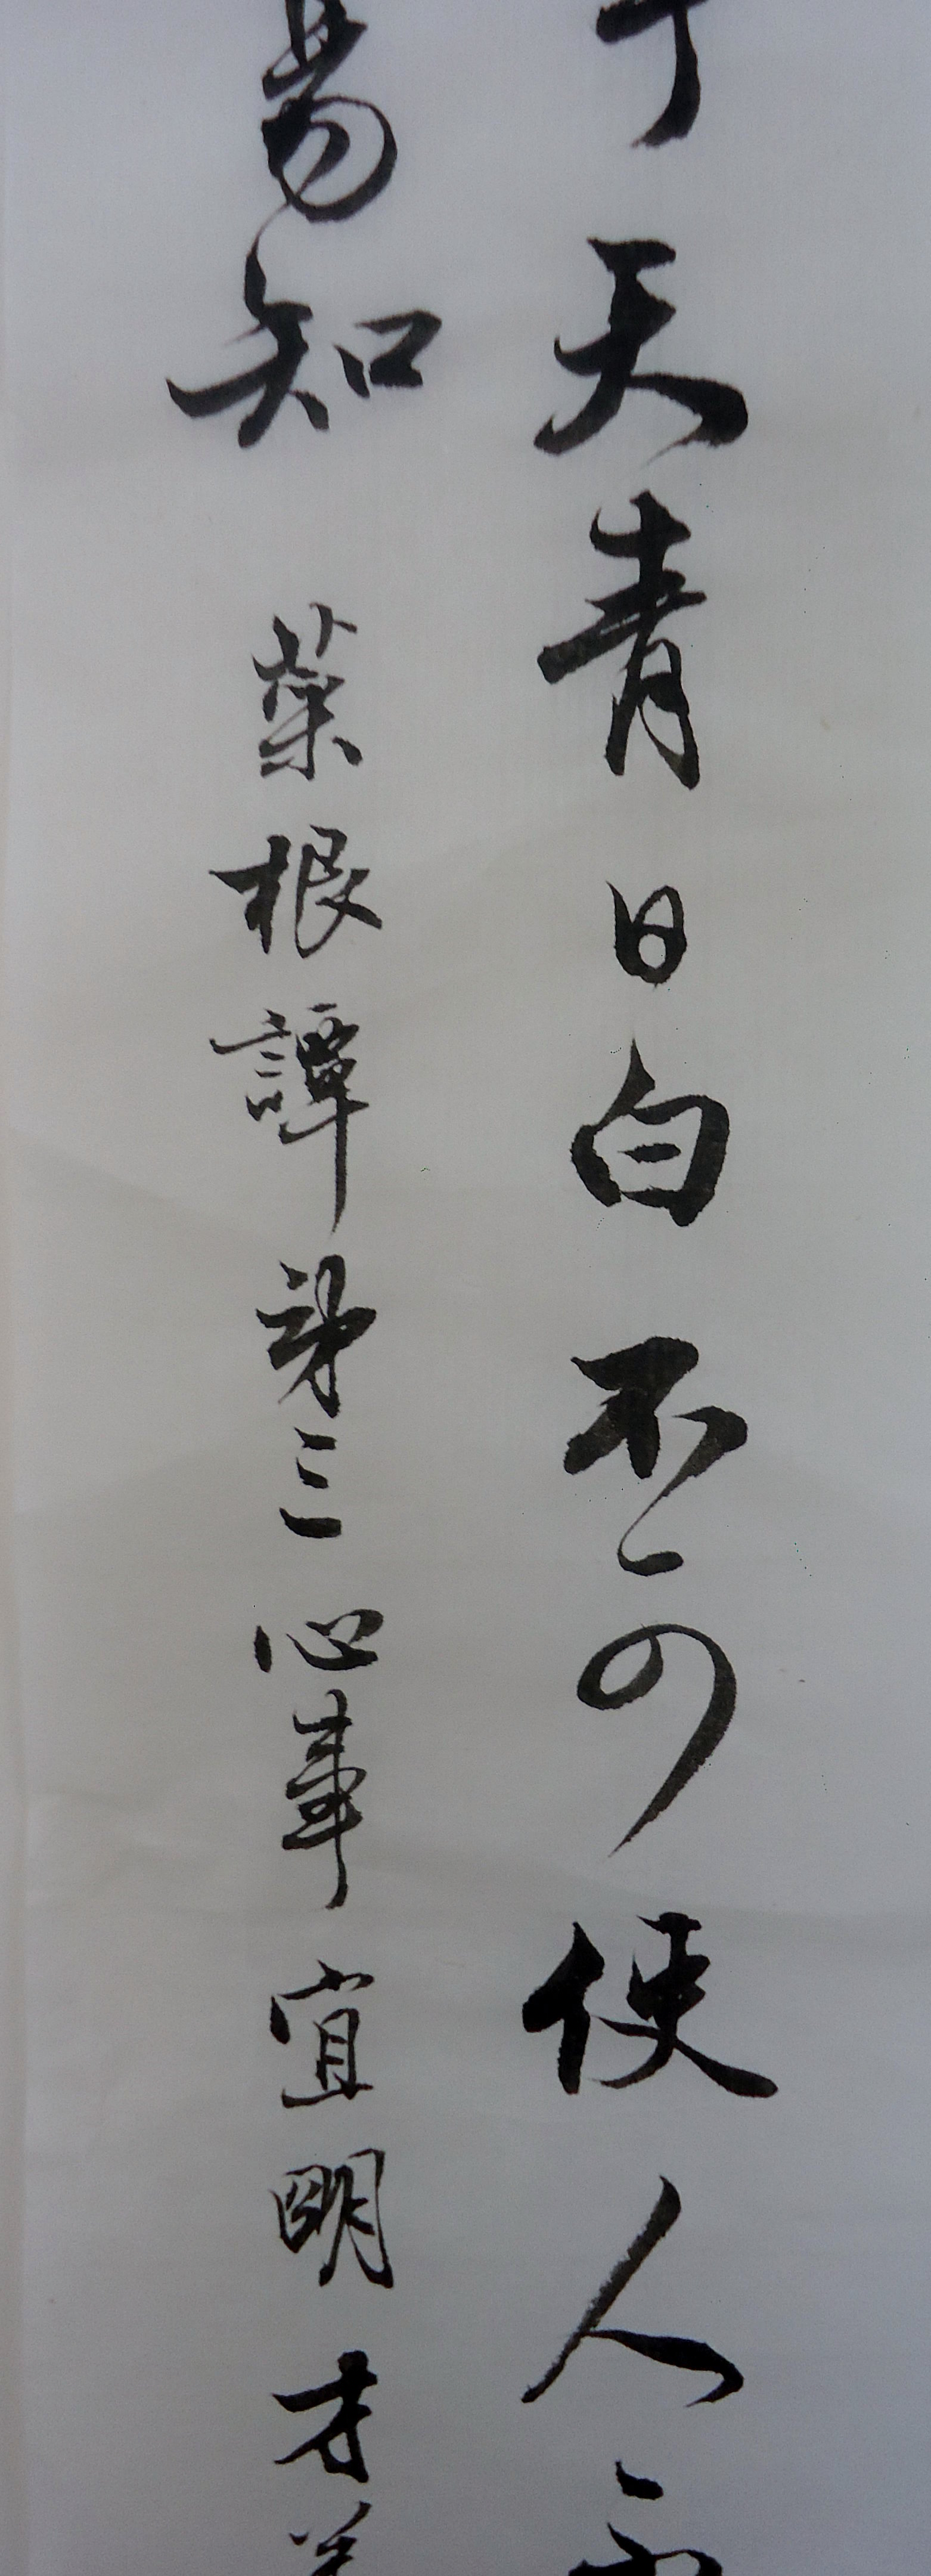 天青日白不可使人
易知 菜根譚第三 心事宜明才